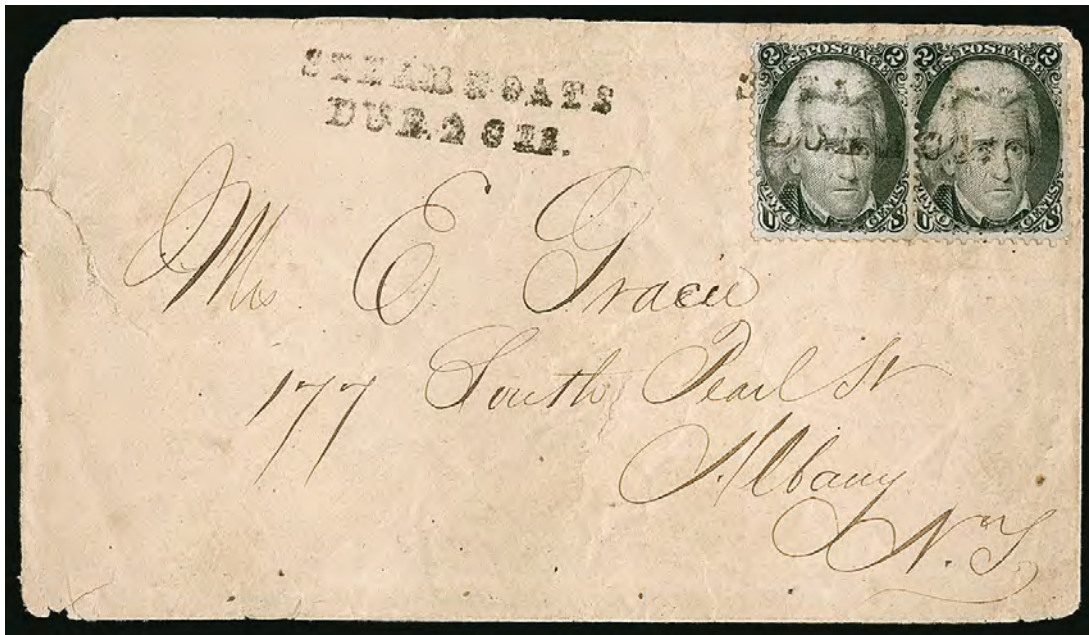 STEAMBOATS
DUE. 2 CTS.
2 U.S. POSTAGE 2
TWO CENTS
U S
2 U.S. POSTAGE 2
TWO CENTS
U S
Mrs E Gracie
177 South Pearl St
Albany
N.Y.